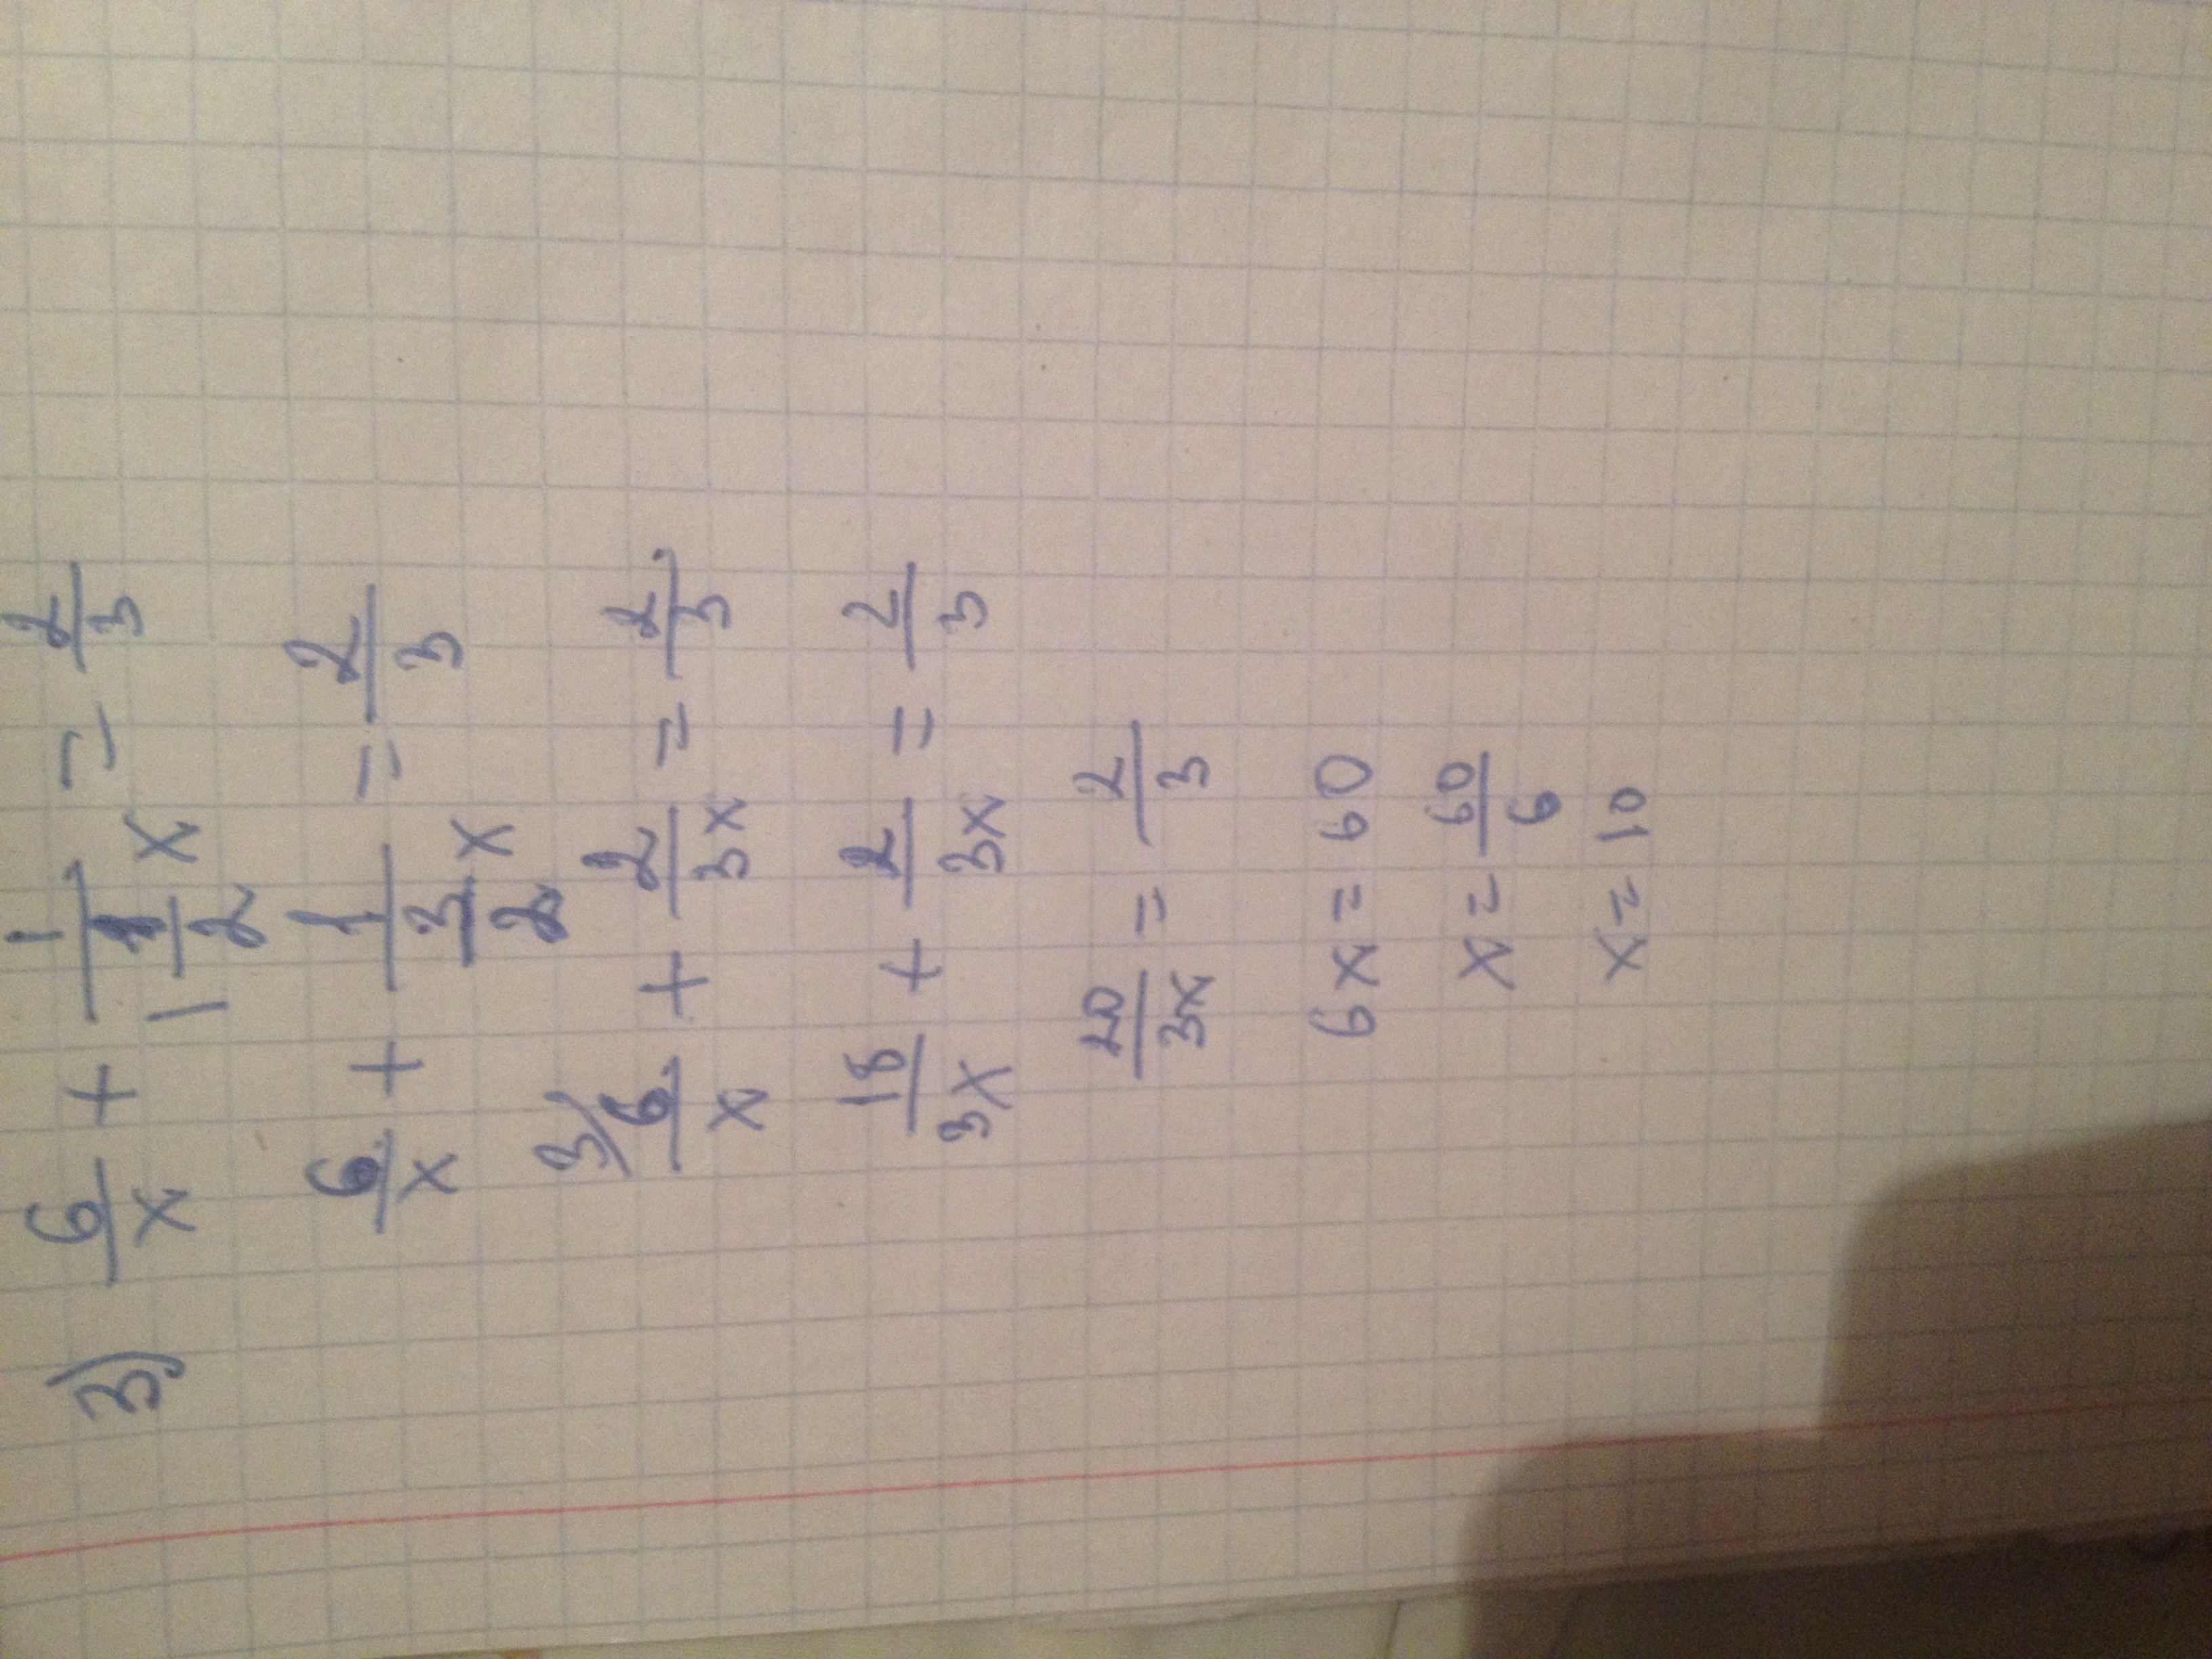 3) 6/x + 1/(1 1/2 x) = 2/3
6/x + 1/(3/2 x) = 2/3
3/ 6/x + 2/3x = 2/3
18/3x + 2/3x = 2/3
20/3x = 2/3
6x = 60
x = 60/6
x = 10